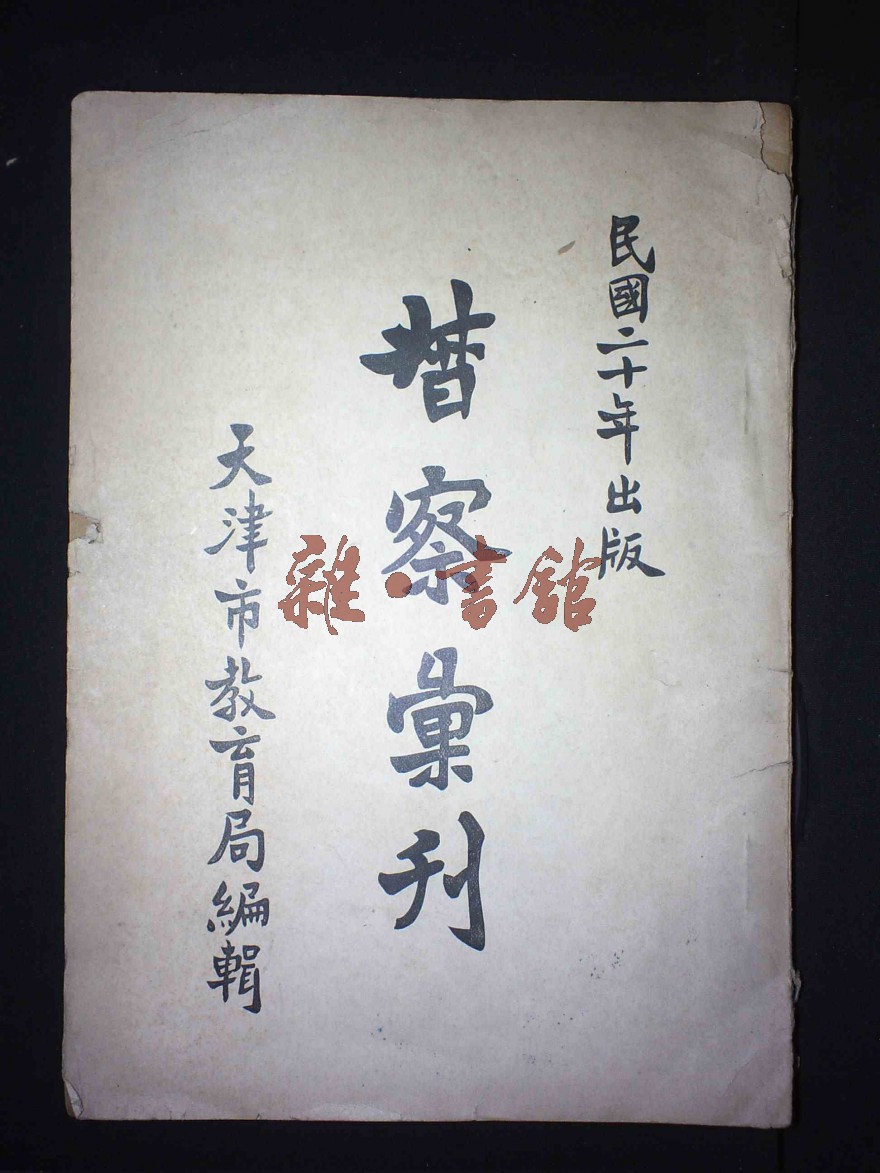 民國二十年出版
督察彙刊
天津市教育局編輯
雜·書館